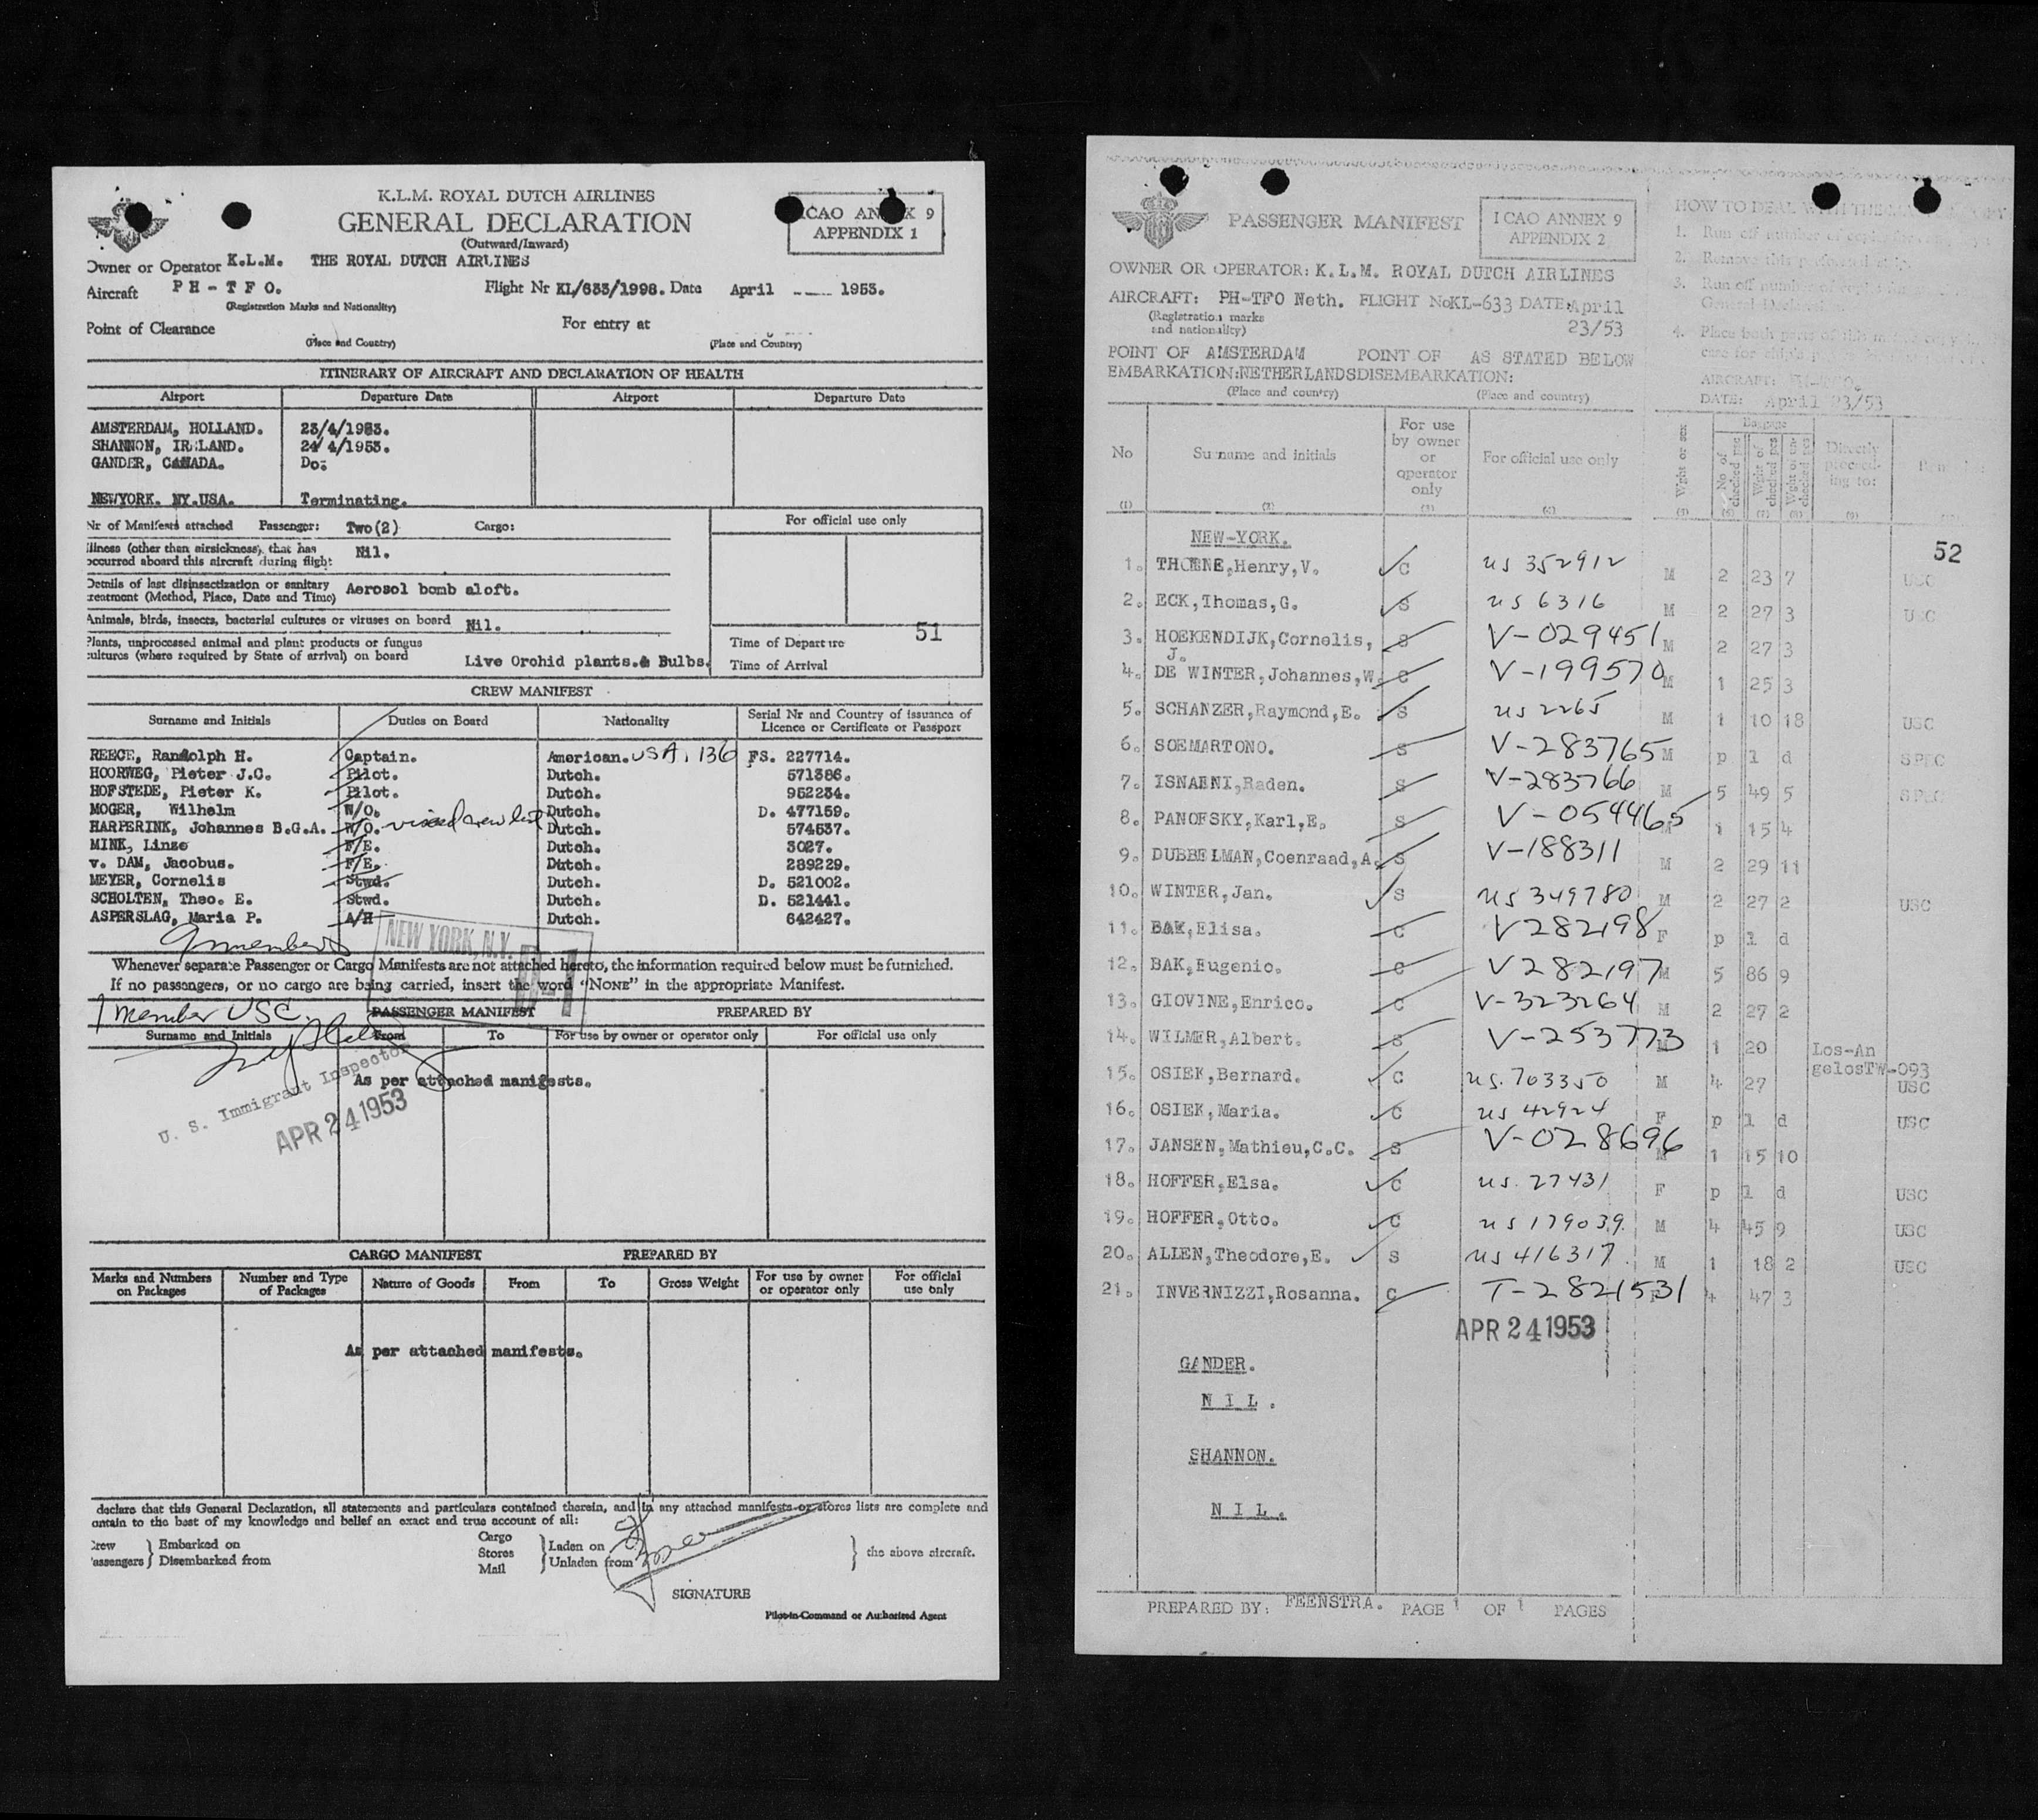 K.L.M. ROYAL DUTCH AIRLINES
GENERAL DECLARATION
(Outward/Inward)
ICAO ANNEX 9
APPENDIX 1
Owner or Operator K.L.M. THE ROYAL DUTCH AIRLINES
Aircraft PH-TFO. Flight Nr KL/633/1998. Date April 1953.
(Registration Marks and Nationality)
Point of Clearance For entry at
(Place and Country) (Place and Country)
ITINERARY OF AIRCRAFT AND DECLARATION OF HEALTH
Airport Departure Date Airport Departure Date
AMSTERDAM, HOLLAND. 23/4/1953.
SHANNON, IRELAND. 24 4/1953.
GANDER, CANADA. Do:
NEWYORK. NY.USA. Terminating.
Nr of Manifests attached Passenger: Two(2) Cargo: For official use only
illness (other than airsickness), that has Nil.
occurred aboard this aircraft during flight
Details of last disinsectization or sanitary Aerosol bomb aloft.
treatment (Method, Place, Date and Time)
Animals, birds, insects, bacterial cultures or viruses on board Nil.
51
Plants, unprocessed animal and plant products or fungus Time of Departure
cultures (where required by State of arrival) on board Live Orchid plants.& Bulbs. Time of Arrival
CREW MANIFEST
Surname and Initials Duties on Board Nationality Serial Nr and Country of issuance of
Licence or Certificate or Passport
REECE, Randolph H. Captain. American. USA. 136 FS. 227714.
HOORWEG, Pieter J.C. Pilot. Dutch. 571386.
HOFSTEDE, Pieter K. Pilot. Dutch. 952234.
MOGER, Wilhelm W/O. Dutch. D. 477159.
HARPERINK, Johannes B.G.A. W/O. visaed crew list Dutch. 574537.
MINK, Linze F/E. Dutch. 3027.
v. DAM, Jacobus. F/E. Dutch. 289229.
MEYER, Cornelis Stwd. Dutch. D. 521002.
SCHOLTEN, Theo. E. Stwd. Dutch. D. 521441.
ASPERSLAG, Maria P. A/H Dutch. 642427.
9 members
NEW YORK, N.Y.
Whenever separate Passenger or Cargo Manifests are not attached hereto, the information required below must be furnished.
If no passengers, or no cargo are being carried, insert the word “NONE” in the appropriate Manifest.
1 member USC.
PASSENGER MANIFEST PREPARED BY
Surname and Initials From To For use by owner or operator only For official use only
U. S. Immigrant Inspector
As per attached manifests.
APR 24 1953
CARGO MANIFEST PREPARED BY
Marks and Numbers on Packages Number and Type of Packages Nature of Goods From To Gross Weight For use by owner or operator only For official use only
As per attached manifests.
declare that this General Declaration, all statements and particulars contained therein, and in any attached manifests or stores lists are complete and
ontain to the best of my knowledge and belief an exact and true account of all:
Crew Embarked on Cargo Laden on
Passengers Disembarked from Stores Unladen from the above aircraft.
Mail
SIGNATURE
Pilot-in-Command or Authorised Agent
PASSENGER MANIFEST
I CAO ANNEX 9
APPENDIX 2
OWNER OR OPERATOR: K.L.M. ROYAL DUTCH AIRLINES
AIRCRAFT: PH-TFO Neth. FLIGHT NoKL-633 DATE:April
(Registration marks and nationality) 23/53
POINT OF AMSTERDAM POINT OF AS STATED BELOW
EMBARKATION:NETHERLANDSDISEMBARKATION:
(Place and country) (Place and country)
HOW TO DEAL WITH THE
1. Run off number of copies
2. Remove this perforated strip.
3. Run off number of copies
General Declaration.
4. Place both parts of this
AIRCRAFT: PH-TFO.
DATE: April 23/53
No Surname and initials For use by owner or operator only For official use only Baggage No of checked pcs Wght of checked pcs Directly proceeding to:
(1) (2) (3) (4) (5) (6) (7) (8) (9)
NEW-YORK.
52
1. THOENE,Henry,V. C us 352912 M 2 23 7 USC
2. ECK,Thomas,G. S us 6316 M 2 27 3 USC
3. HOEKENDIJK,Cornelis, J. S V-029451 M 2 27 3
4. DE WINTER,Johannes,W. C V-199570 M 1 25 3
5. SCHANZER,Raymond,E. S us 2265 M 1 10 18 USC
6. SOEMARTONO. S V-283765 M p l d SPEC
7. ISNAENI,Raden. S V-283766 M 5 49 5 SPEC
8. PANOFSKY,Karl,E. S V-054465 M 1 15 4
9. DUBBELMAN,Coenraad,A. S V-188311 M 2 29 11
10. WINTER,Jan. S us 349780 M 2 27 2 USC
11. BAK,Elisa. C V282198 F p l d
12. BAK,Eugenio. C V282197 M 5 86 9
13. GIOVINE,Enrico. C V-323264 M 2 27 2
14. WILMER,Albert. S V-253773 M 1 20 Los-An
gelosTW-093
15. OSIEK,Bernard. C us. 703350 M 4 27 USC
16. OSIEK,Maria. C us 42924 F p l d USC
17. JANSEN,Mathieu,C.C. S V-028696 M 1 15 10
18. HOFFER,Elsa. C us. 27431 F p l d USC
19. HOFFER,Otto. C us 179039 M 4 45 9 USC
20. ALLEN,Theodore,E. S us 416317 M 1 18 2 USC
21. INVERNIZZI,Rosanna. C T-2821531 F 4 47 3
APR 24 1953
GANDER.
N I L .
SHANNON.
N I L .
PREPARED BY: FEENSTRA. PAGE 1 OF 1 PAGES